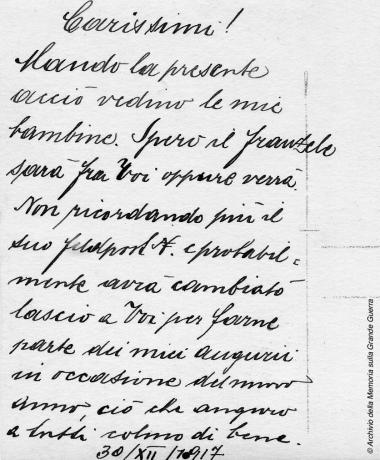 Carissimi!
Mando la presente
acciò vedino le mie
bambine. Spero il Franzele
sarà fra Voi oppure verrà.
Non ricordando più il
suo feldpost N. e probabil=
mente avrà cambiato
lascio a Voi per farne
parte dei miei augurii
in occasione del nuovo
anno, ciò che auguro
a tutti colmo di bene.
30/XII/1917
© Archivio della Memoria sulla Grande Guerra